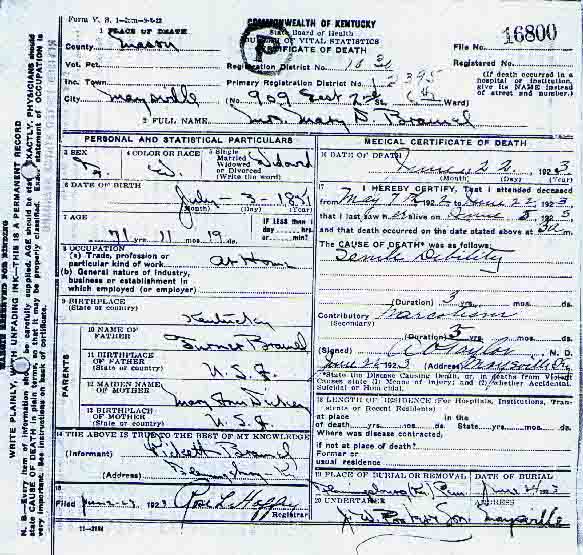 Form V. S. 1-
COMMONWEALTH OF KENTUCKY
State Board of Health
BUREAU OF VITAL STATISTICS
CERTIFICATE OF DEATH
16800
File No.
1 PLACE OF DEATH
County Mason
Vot. Pct.
Registration District No.
Registered No.
Inc. Town
Primary Registration District No. 2395
(If death occurred in a hospital or institution, give its NAME instead of street and number.)
City Maysville (No. 909 East 2nd St. Ward)
2 FULL NAME Mrs. Mary D. Bramel
PERSONAL AND STATISTICAL PARTICULARS
3 SEX
4 COLOR OR RACE
5 Single
Married
Widowed
or Divorced
(Write the word)
Widowed
6 DATE OF BIRTH
July - 3 - 1851
(Month) (Day) (Year)
7 AGE
71 yrs. 11 mos. 19 ds.
IF LESS than 1 day ... hrs. or ... min?
8 OCCUPATION
(a) Trade, profession or particular kind of work
At Home
(b) General nature of industry, business or establishment in which employed (or employer)
9 BIRTHPLACE
(State or country)
Kentucky
PARENTS
10 NAME OF FATHER
Turner Bramel
11 BIRTHPLACE OF FATHER
(State or country)
U.S.A.
12 MAIDEN NAME OF MOTHER
Mary
13 BIRTHPLACE OF MOTHER
(State or country)
U.S.A.
14 THE ABOVE IS TRUE TO THE BEST OF MY KNOWLEDGE
(Informant) Pickett Bramel
(Address) Flemingsburg K
15
Filed 192 3
Registrar
MEDICAL CERTIFICATE OF DEATH
16 DATE OF DEATH
June 22 1923
(Month) (Day) (Year)
17 I HEREBY CERTIFY, That I attended deceased
from May 7th 192 , to June 22 1923
that I last saw her alive on June
and that death occurred on the date stated above at m.
The CAUSE OF DEATH* was as follows:
Senile Debility
(Duration) 3 yrs. mos. ds.
Contributory Narcotism
(Secondary)
(Duration) 5 yrs. mos. ds.
(Signed) Taylor M. D.
192 3 (Address) Maysville Ky
*State the Disease Causing Death, or, in deaths from Violent Causes state (1) Means of Injury; and (2) whether Accidental, Suicidal or Homicidal.
18 LENGTH OF RESIDENCE (For Hospitals, Institutions, Transients or Recent Residents)
At place of death yrs. mos. ds. In the State yrs. mos. ds.
Where was disease contracted, if not at place of death?
Former or usual residence
19 PLACE OF BURIAL OR REMOVAL
DATE OF BURIAL
20 UNDERTAKER
ADDRESS
Maysville
WRITE PLAINLY, WITH UNFADING INK—THIS IS A PERMANENT RECORD
N. B.—Every item of information should be carefully supplied. AGE should be stated EXACTLY. PHYSICIANS should state CAUSE OF DEATH in plain terms, so that it may be properly classified. Exact statement of OCCUPATION is very important. See instructions on back of certificate.